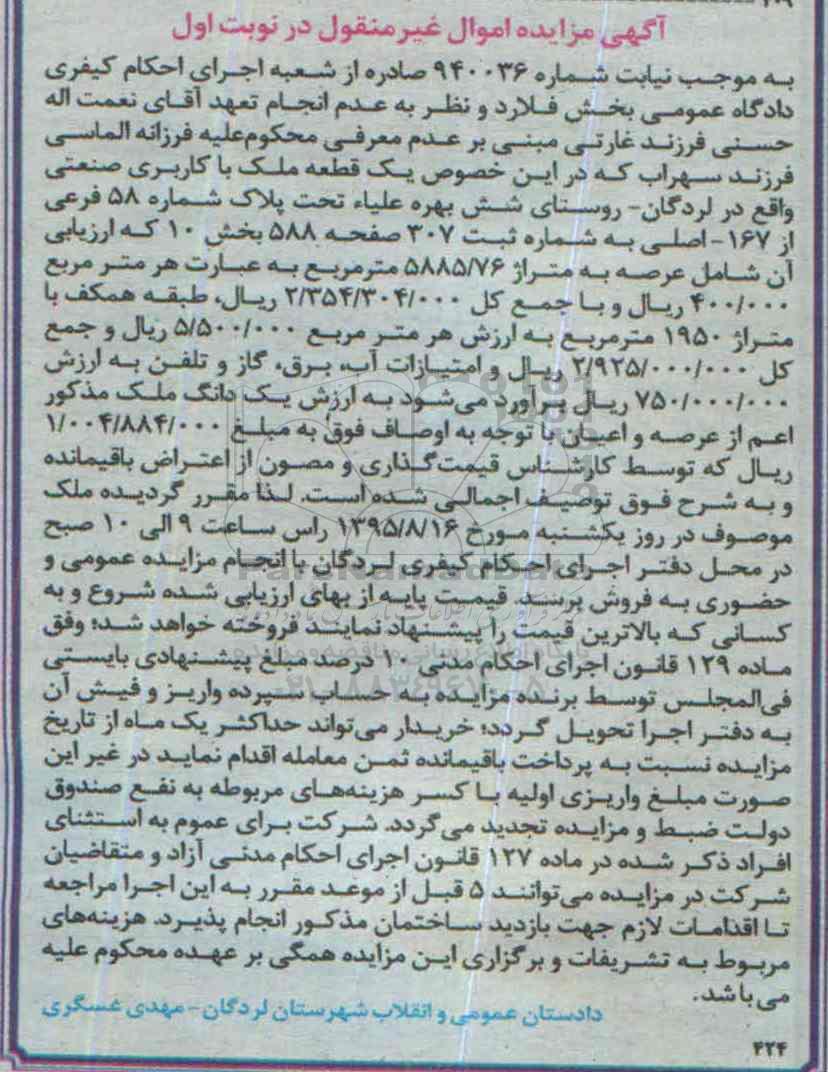 آگهی مزایده اموال غیر منقول در نوبت اول
به موجب نیابت شماره ۹۴۰۰۳۶ صادره از شعبه اجرای احکام کیفری
دادگاه عمومی بخش فلارد و نظر به عدم انجام تعهد آقای نعمت اله
حسنی فرزند غارتی مبنی بر عدم معرفی محکوم‌علیه فرزانه الماسی
فرزند سهراب که در این خصوص یک قطعه ملک با کاربری صنعتی
واقع در لردگان- روستای شش بهره علیاء تحت پلاک شماره ۵۸ فرعی
از ۱۶۷- اصلی به شماره ثبت ۳۰۷ صفحه ۵۸۸ بخش ۱۰ که ارزیابی
آن شامل عرصه به متراژ ۵۸۸۵/۷۶ مترمربع به عبارت هر متر مربع
۴۰۰/۰۰۰ ریال و با جمع کل ۲/۳۵۴/۳۰۴/۰۰۰ ریال، طبقه همکف با
متراژ ۱۹۵۰ مترمربع به ارزش هر متر مربع ۵/۵۰۰/۰۰۰ ریال و جمع
کل ۲/۹۲۵/۰۰۰/۰۰۰ ریال و امتیازات آب، برق، گاز و تلفن به ارزش
۷۵۰/۰۰۰/۰۰۰ ریال برآورد می‌شود به ارزش یک دانگ ملک مذکور
اعم از عرصه و اعیان با توجه به اوصاف فوق به مبلغ ۱/۰۰۴/۸۸۴/۰۰۰
ریال که توسط کارشناس قیمت‌گذاری و مصون از اعتراض باقیمانده
و به شرح فوق توصیف اجمالی شده است. لذا مقرر گردیده ملک
موصوف در روز یکشنبه مورخ ۱۳۹۵/۸/۱۶ راس ساعت ۹ الی ۱۰ صبح
در محل دفتر اجرای احکام کیفری لردگان با انجام مزایده عمومی و
حضوری به فروش برسد. قیمت پایه از بهای ارزیابی شده شروع و به
کسانی که بالاترین قیمت را پیشنهاد نمایند فروخته خواهد شد؛ وفق
ماده ۱۲۹ قانون اجرای احکام مدنی ۱۰ درصد مبلغ پیشنهادی بایستی
فی‌المجلس توسط برنده مزایده به حساب سپرده واریز و فیش آن
به دفتر اجرا تحویل گردد؛ خریدار می‌تواند حداکثر یک ماه از تاریخ
مزایده نسبت به پرداخت باقیمانده ثمن معامله اقدام نماید در غیر این
صورت مبلغ واریزی اولیه با کسر هزینه‌های مربوطه به نفع صندوق
دولت ضبط و مزایده تجدید می‌گردد. شرکت برای عموم به استثنای
افراد ذکر شده در ماده ۱۲۷ قانون اجرای احکام مدنی آزاد و متقاضیان
شرکت در مزایده می‌توانند ۵ قبل از موعد مقرر به این اجرا مراجعه
تا اقدامات لازم جهت بازدید ساختمان مذکور انجام پذیرد. هزینه‌های
مربوط به تشریفات و برگزاری این مزایده همگی بر عهده محکوم علیه
می‌باشد.
دادستان عمومی و انقلاب شهرستان لردگان- مهدی عسگری
۴۲۴